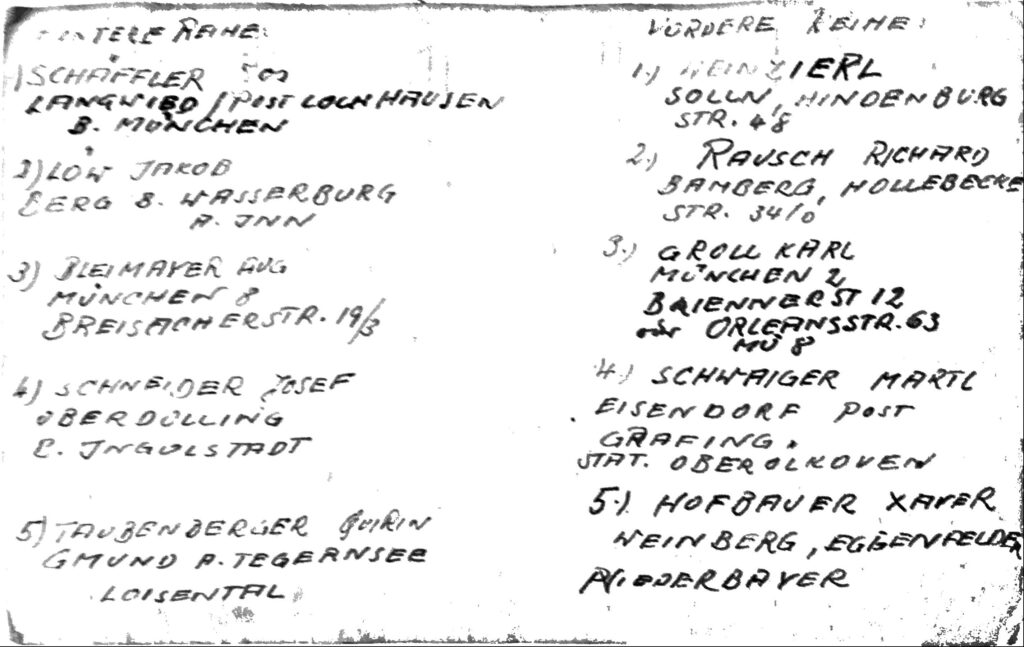 HINTERE REIHE:
1) SCHÄFFLER JOS
LANGWIED / POST LOCHHAUSEN
B. MÜNCHEN
2) LÖW JAKOB
BERG B. WASSERBURG
A. INN
3) BLEIMAYER AUG
MÜNCHEN 8
BREISACHERSTR. 19/3
4) SCHNEIDER JOSEF
OBERDOLLING
B. INGOLSTADT
5) TAUBENBERGER QUIRIN
GMUND A. TEGERNSEE
LOISENTAL
VORDERE REIHE:
1.) WEINZIERL
SOLLN, HINDENBURG
STR. 48
2.) RAUSCH RICHARD
BAMBERG, HOLLEBECKE
STR. 34/0
3.) GROLL KARL
MÜNCHEN 2
BRIENNERST 12
oder ORLEANSSTR. 63
MÜ 8
4.) SCHWAIGER MARTL
EISENDORF POST
GRAFING.
STAT. OBERELKOVEN
5.) HOFBAUER XAVER
WEINBERG, EGGENFELDEN
NIEDERBAYER